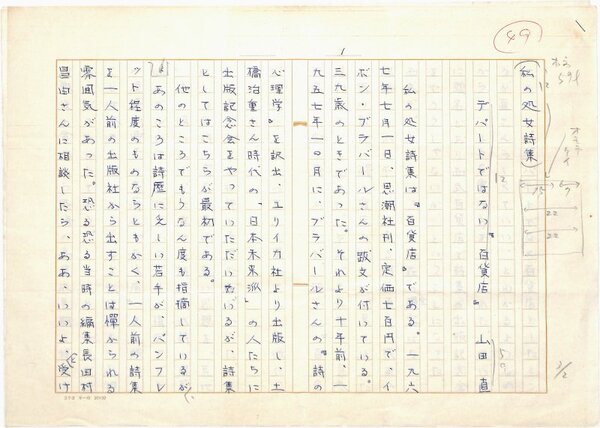 49
1
(私の処女詩集)
デパートではない『百貨店』 山田 直
私の処女詩集は『百貨店』である。一九六
七年七月一日、思潮社刊、定価七百円で、イ
ボン・ブラバールさんの跋文が付いている。
三九歳のときであった。それより十年前、一
九五七年一〇月に、ブラバールさんの『詩の
心理学』を訳出、ユリイカ社より出版し、土
橋治重さん時代の「日本未来派」の人たちに
出版記念会をやっていただいているが、詩集
としてはこちらが最初である。
他のところでもなん度も指摘しているが、
あのころは詩歴に乏しい若手が、パンフレ
ット程度のものならともかく、一人前の詩集
を一人前の出版社から出すことは憚かられる
雰囲気があった。恐る恐る当時の編集長田村
昌由さんに相談したら、ああ、いいよ、と受け
12
12
15
22
22
3/2